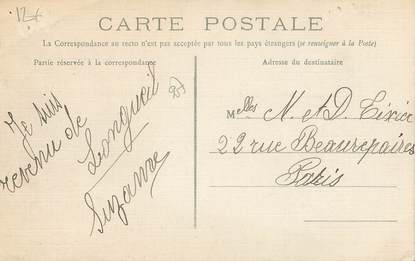 12€
CARTE POSTALE
La Correspondance au recto n'est pas acceptée par tous les pays étrangers (se renseigner à la Poste)
Partie réservée à la correspondance
Adresse du destinataire
Je suis
revenu de
Longueil
Suzanne
Melles N. et D. Tixier
22 rue Beaurepaires
Paris